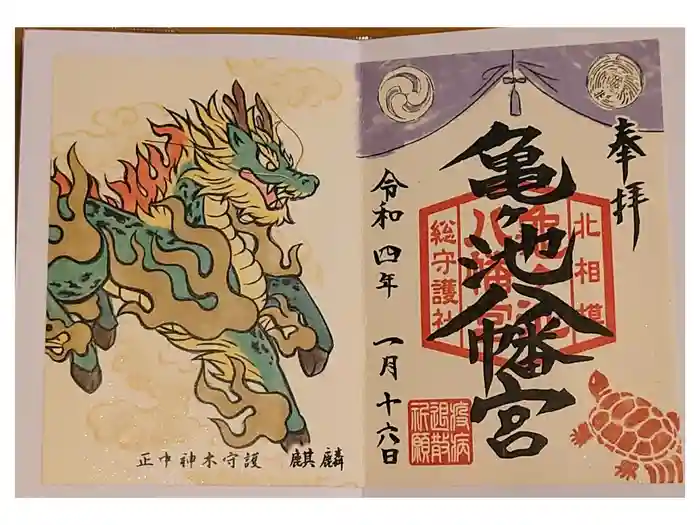 奉拝
北相模
亀ヶ池八幡宮
総守護社
亀ヶ池八幡宮
疫病
退散
祈願
令和四年 一月十六日
正中神木守護 麒麟